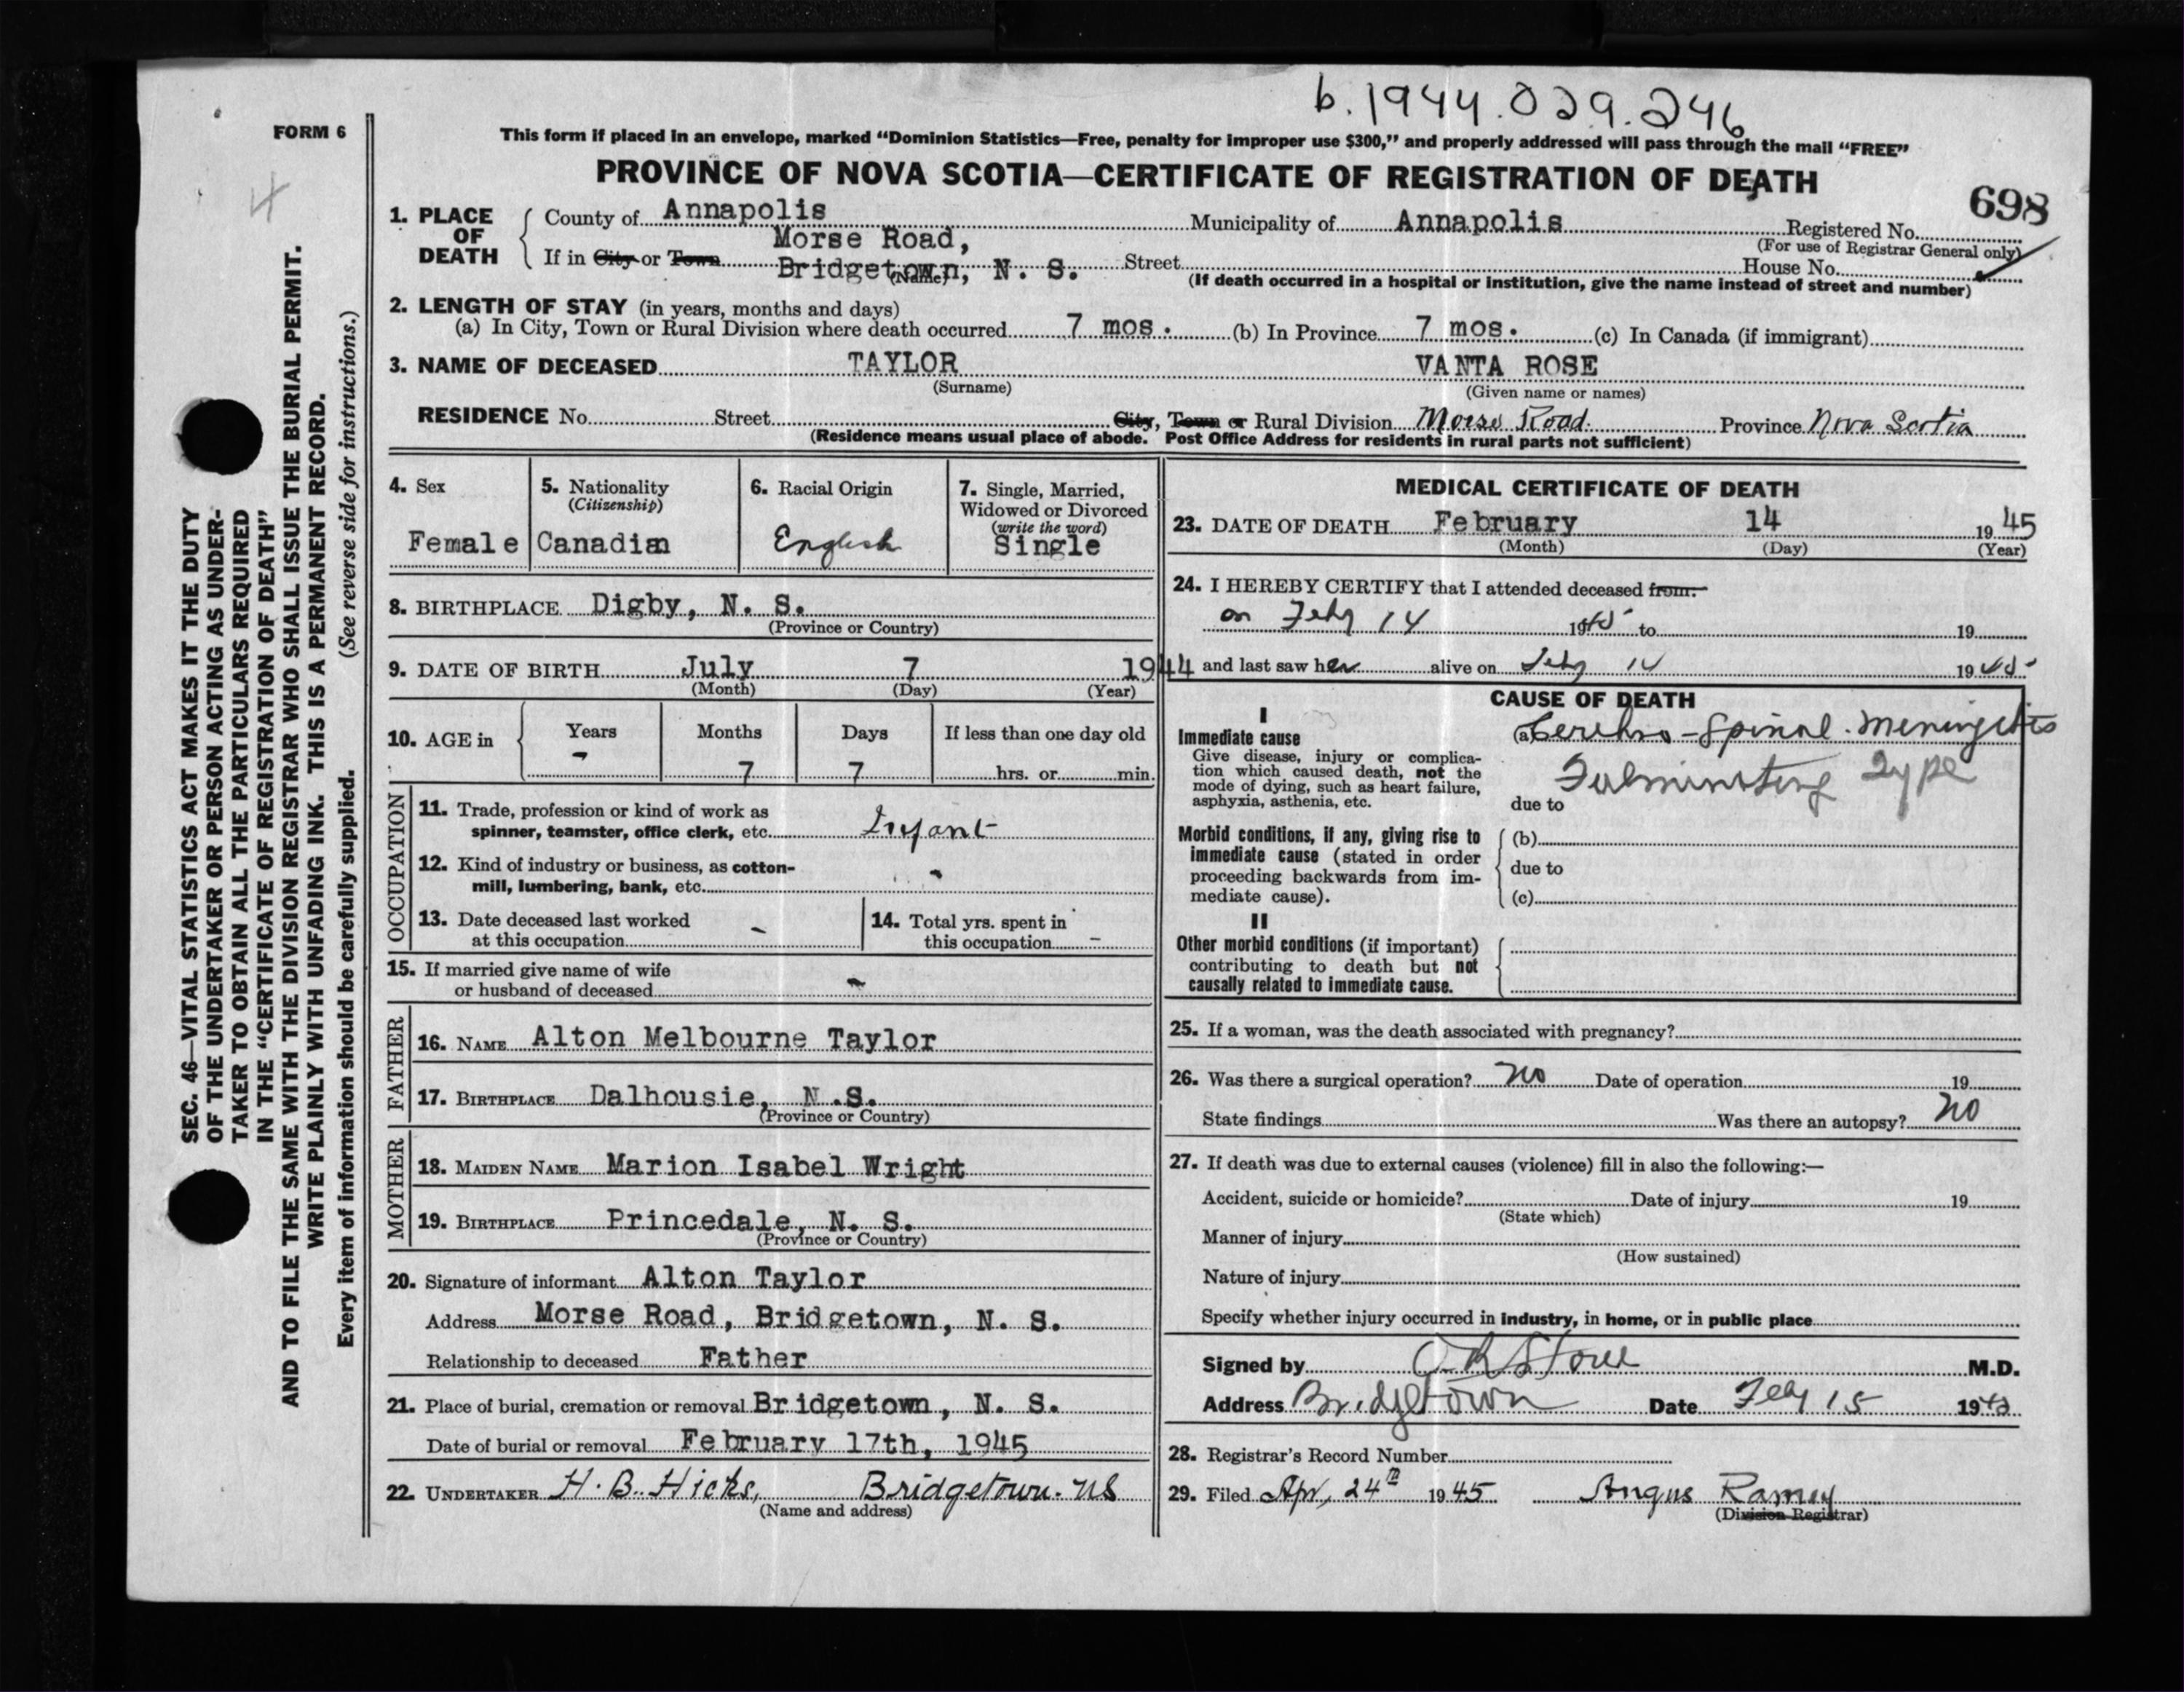 b.1944.029.246
FORM 6
This form if placed in an envelope, marked “Dominion Statistics—Free, penalty for improper use $300,” and properly addressed will pass through the mail “FREE”
4
PROVINCE OF NOVA SCOTIA—CERTIFICATE OF REGISTRATION OF DEATH
698
1. PLACE OF DEATH
County of Annapolis Municipality of Annapolis Registered No.
(For use of Registrar General only)
If in City or Town Morse Road,
Bridgetown, N. S. Street House No.
(Name)
(If death occurred in a hospital or institution, give the name instead of street and number)
2. LENGTH OF STAY (in years, months and days)
(a) In City, Town or Rural Division where death occurred 7 mos. (b) In Province 7 mos. (c) In Canada (if immigrant)
3. NAME OF DECEASED TAYLOR VANTA ROSE
(Surname) (Given name or names)
RESIDENCE No. Street City, Town or Rural Division Morse Road. Province Nova Scotia
(Residence means usual place of abode. Post Office Address for residents in rural parts not sufficient)
4. Sex
Female
5. Nationality
(Citizenship)
Canadian
6. Racial Origin
English
7. Single, Married,
Widowed or Divorced
(write the word)
Single
8. BIRTHPLACE Digby, N. S.
(Province or Country)
9. DATE OF BIRTH July 7 1944
(Month) (Day) (Year)
10. AGE in Years Months Days If less than one day old
- 7 7 hrs. or min.
OCCUPATION
11. Trade, profession or kind of work as
spinner, teamster, office clerk, etc. Infant
12. Kind of industry or business, as cotton-
mill, lumbering, bank, etc. -
13. Date deceased last worked
at this occupation -
14. Total yrs. spent in
this occupation -
15. If married give name of wife
or husband of deceased -
FATHER
16. NAME Alton Melbourne Taylor
17. BIRTHPLACE Dalhousie, N.S.
(Province or Country)
MOTHER
18. MAIDEN NAME Marion Isabel Wright
19. BIRTHPLACE Princedale, N. S.
(Province or Country)
20. Signature of informant Alton Taylor
Address Morse Road, Bridgetown, N. S.
Relationship to deceased Father
21. Place of burial, cremation or removal Bridgetown, N. S.
Date of burial or removal February 17th, 1945
22. UNDERTAKER H. B. Hicks, Bridgetown. NS
(Name and address)
MEDICAL CERTIFICATE OF DEATH
23. DATE OF DEATH February 14 1945
(Month) (Day) (Year)
24. I HEREBY CERTIFY that I attended deceased from:
on Feby 14 1945 to 19
and last saw her alive on Feby 14 1945
CAUSE OF DEATH
I
Immediate cause
Give disease, injury or complica-
tion which caused death, not the
mode of dying, such as heart failure,
asphyxia, asthenia, etc.
(a) Cerebro-Spinal. Meningitis
Fulminating Type
due to
Morbid conditions, if any, giving rise to
immediate cause (stated in order
proceeding backwards from im-
mediate cause).
(b)
due to
(c)
II
Other morbid conditions (if important)
contributing to death but not
causally related to immediate cause.
25. If a woman, was the death associated with pregnancy?
26. Was there a surgical operation? No Date of operation 19
State findings Was there an autopsy? No
27. If death was due to external causes (violence) fill in also the following:—
Accident, suicide or homicide? Date of injury 19
(State which)
Manner of injury
(How sustained)
Nature of injury
Specify whether injury occurred in industry, in home, or in public place
Signed by M.D.
Address Bridgetown Date Feby 15 19
28. Registrar's Record Number
29. Filed Apr, 24th 1945 Angus Ramey
(Division Registrar)
SEC. 46—VITAL STATISTICS ACT MAKES IT THE DUTY
OF THE UNDERTAKER OR PERSON ACTING AS UNDER-
TAKER TO OBTAIN ALL THE PARTICULARS REQUIRED
IN THE “CERTIFICATE OF REGISTRATION OF DEATH”
AND TO FILE THE SAME WITH THE DIVISION REGISTRAR WHO SHALL ISSUE THE BURIAL PERMIT.
WRITE PLAINLY WITH UNFADING INK. THIS IS A PERMANENT RECORD.
Every item of information should be carefully supplied. (See reverse side for instructions.)